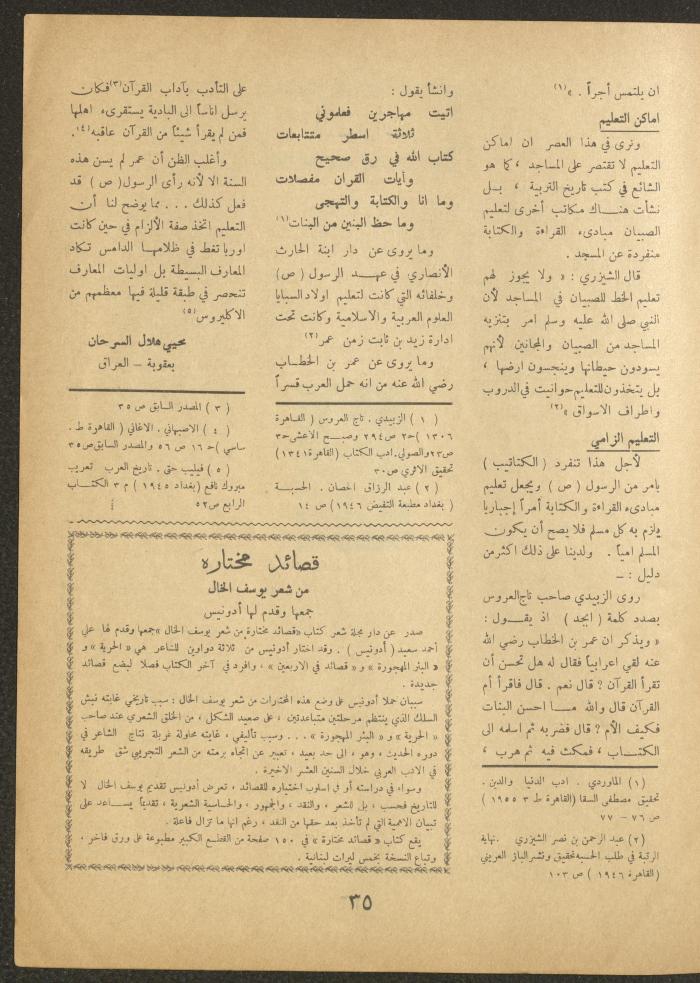 ان يلتمس أجراً . »(١)
اماكن التعليم
ونرى في هذا العصر ان اماكن
التعليم لا تقتصر على المساجد ، كما هو
الشائع في كتب تاريخ التربية ، بل
نشأت هناك مكاتب أخرى لتعليم
الصبيان مبادىء القراءة والكتابة
منفردة عن المسجد .
قال الشيزري : « ولا يجوز لهم
تعليم الخط للصبيان في المساجد لأن
النبي صلى الله عليه وسلم امر بتنزيه
المساجد من الصبيان والمجانين لأنهم
يسودون حيطانها وينجسون ارضها ،
بل يتخذون للتعليم حوانيت في الدروب
واطراف الاسواق »(٢)
التعليم الزامي
لأجل هذا تنفرد ( الكتاتيب )
بامر من الرسول ( ص ) ويجعل تعليم
مبادىء القراءة والكتابة أمراً إجباريا
يلزم به كل مسلم فلا يصح أن يكون
المسلم امياً . ولدينا على ذلك اكثر من
دليل : ــ
روى الزبيدي صاحب تاج العروس
بصدد كلمة ( ابجد ) اذ يقول :
« ويذكر ان عمر بن الخطاب رضي الله
عنه لقي اعرابياً فقال له هل تحسن أن
تقرأ القرآن ? قال نعم . قال فاقرأ أم
القرآن قال والله ما احسن البنات
فكيف الأم ? قال فضربه ثم اسلمه الى
الكتاب ، فمكث فيه ثم هرب ،
(١) الماوردي . ادب الدنيا والدين .
تحقيق مصطفى السقا (القاهرة ط ٣ ١٩٥٥ )
ص ٧٦ – ٧٧
(٢) عبد الرحمن بن نصر الشيزري . نهاية
الرتبة في طلب الحسبه تحقيق ونشر الباز العريني
(القاهرة ١٩٤٦ ) ص ١٠٣
وانشأ يقول :
اتيت مهاجرين فعلموني
ثلاثة اسطر متتابعات
كتاب الله في رق صحيح
وآيات القران مفصلات
وما انا والكتابة والتهجى
وما حظ البنين من البنات(١)
وما يروى عن دار ابنة الحارث
الأنصاري في عهد الرسول ( ص )
وخلفائه التي كانت لتعليم اولاد السبايا
العلوم العربية والاسلامية وكانت تحت
ادارة زيد بن ثابت زمن عمر(٢)
وما يروى عن عمر بن الخطاب
رضي الله عنه من انه حمل العرب قسراً
( ١ ) الزبيدي . تاج العروس ( القاهرة
١٣٠٦ )ح٢ ص٢٩٤ وصبح الاعشى ح٣
ص٢٣ والصولي. ادب الكتاب (القاهرة ١٣٤١)
تحقيق الاثري ص٣٠
( ٢ ) عبد الرزاق الحصان . الحسبة
( بغداد مطبعة التفيض ١٩٤٦) ص ١٤
على التأدب بآداب القرآن(٣) فكان
يرسل اناساً الى البادية يستقرىء اهلها
فمن لم يقرأ شيئاً من القرآن عاقبه(٤).
وأغلب الظن أن عمر لم يسن هذه
السنة الا لأنه رأى الرسول( ص ) قد
فعل كذلك . . . مما يوضح لنا أن
التعليم اتخذ صفة الألزام في حين كانت
اوربا تغط في ظلامها الدامس تكاد
المعارف البسيطة بل اوليات المعارف
تنحصر في طبقة قليلة فيها معظمهم من
الاكليروس(٥)
يحيى هلال السرحان
بعقوبة – العراق
( ٣ ) المصدر السابق ص ٣٥
( ٤ ) الاصبهاني . الاغاني ( القاهرة ط .
ساسي )ح ١٦ ص ٥٦ والمصدر السابق ص ٣٥
( ٥ ) فيليب حتى . تاريخ العرب تعريب
مبروك نافع (بغداد ١٩٤٥ ) م ٣ الكتاب
الرابع ص ٥٢
قصائد مختاره
من شعر يوسف الخال
جمعها وقدم لها أدونيس
صدر عن دار مجلة شعر كتاب «قصائد مختارة من شعر يوسف الخال »جمعها وقدم لها علي
احمد سعيد ( أدونيس ) . وقد اختار أدونيس من ثلاثة دواوين للشاعر هي « الحرية » و
« البئر المهجورة » و « قصائد في الاربعين » ، وافرد في آخر الكتاب فصلا لبضع قصائد
جديدة .
سببان حملا أدونيس على وضع هذه المختارات من شعر يوسف الخال : سبب تاريخي غايته نبش
السلك الذي ينتظم مرحلتين متباعدتين ، على صعيد الشكل ، من الخلق الشعري عند صاحب
« الحرية » و « البئر المهجورة » . . . وسبب تأليفي ، غايته محاولة غربلة نتاج الشاعر في
دوره الحديث ، وهو ، الى حد بعيد ، تعبير عن اتجاه برمته من الشعر التجريبي شق طريقه
في الادب العربي خلال السنين العشر الاخيرة .
وسواء في دراسته أو في اسلوب اختياره للقصائد ، تعرض أدونيس تقديم يوسف الخال لا
للتاريخ فحسب ، بل للشعر ، والنقد ، والجمهور ، والحاسية الشعرية ، تقديماً يساعد على
تبيان الاهمية التي لم تأخذ بعد حقها من النقد ، رغم انها ما تزال فاعلة .
يقع كتاب « قصائد مختارة » في ١٥٠ صفحة من القطع الكبير مطبوعة على ورق فاخر ،
وتباع النسخة بخمس ليرات لبنانية .
٣٥